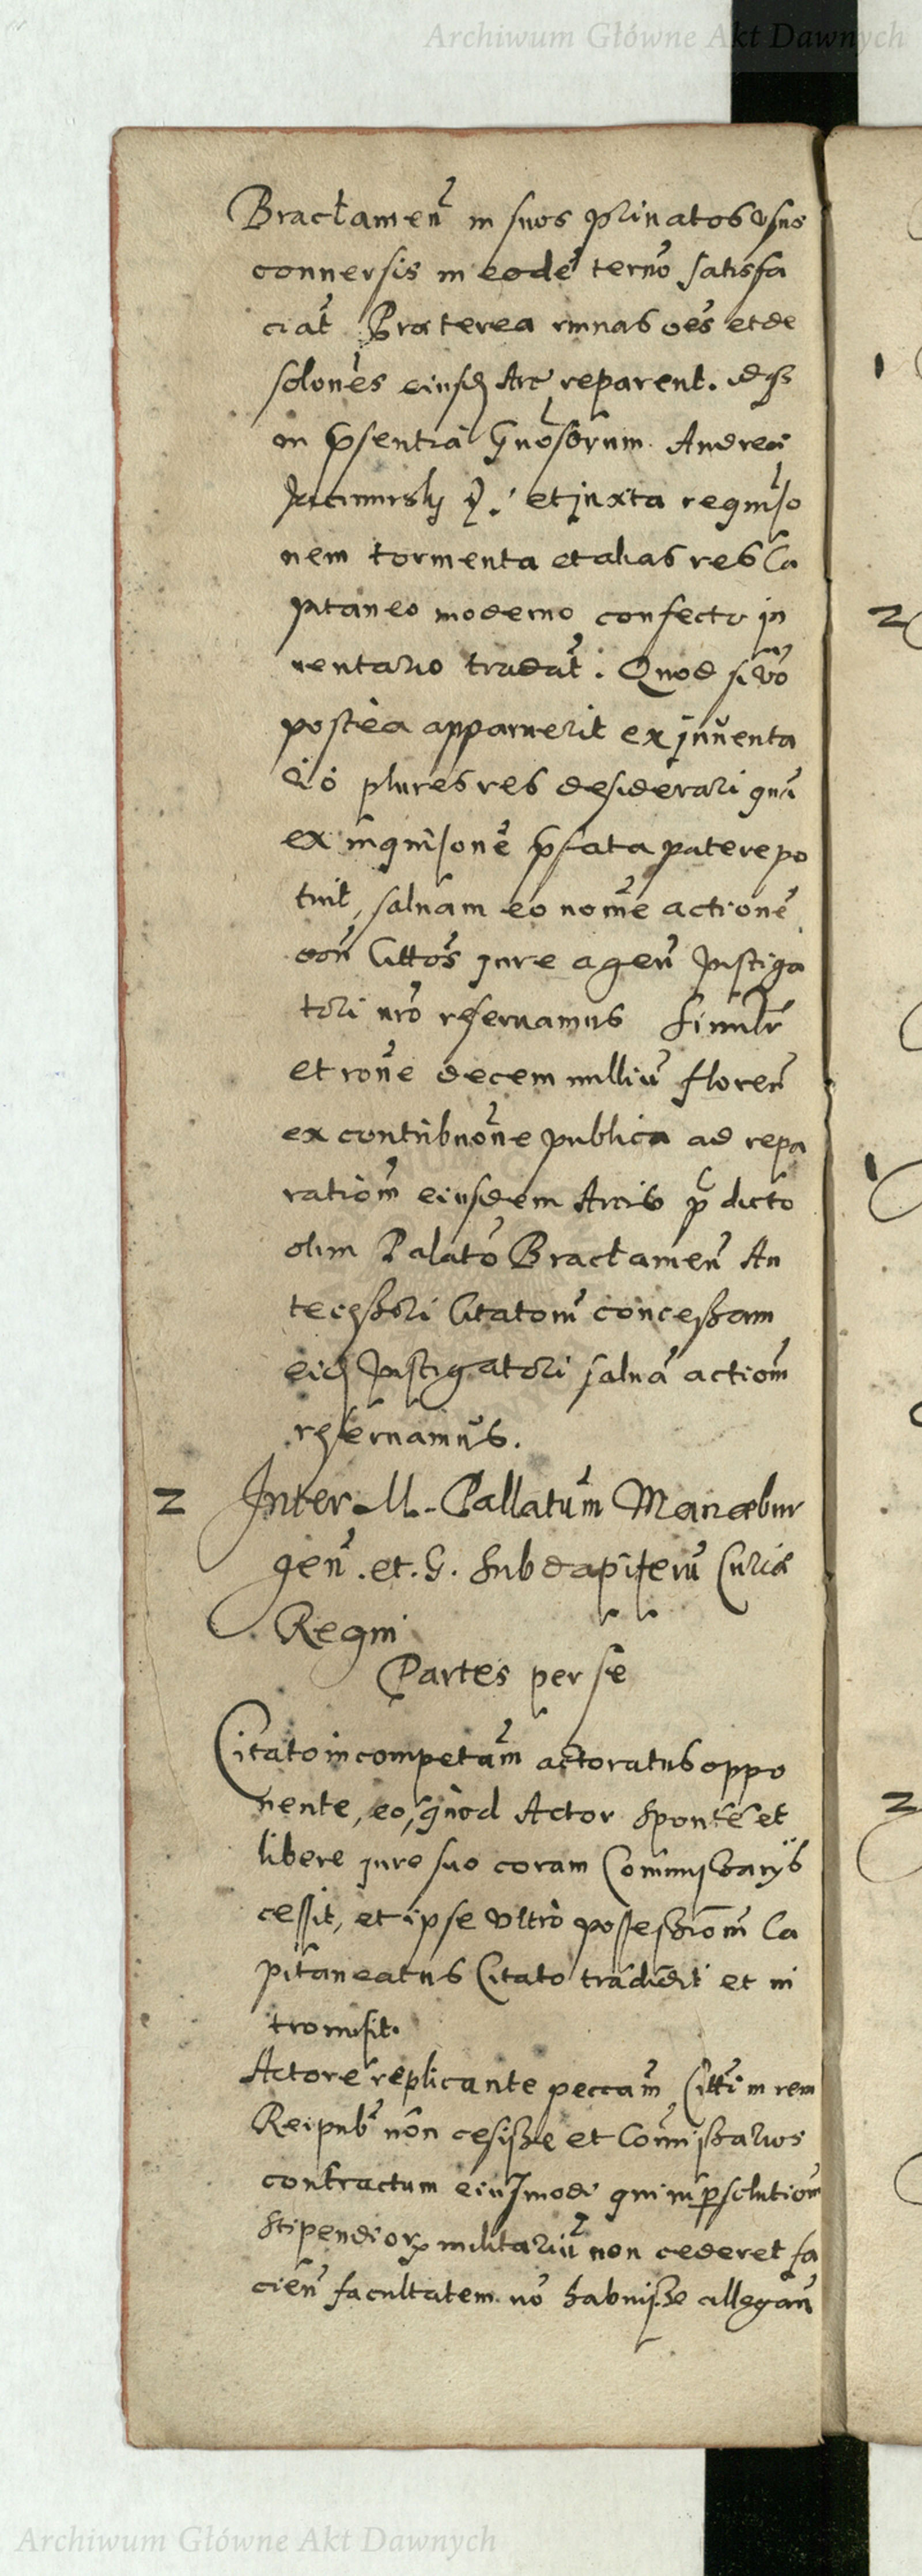 Archiwum Główne Akt Dawnych
Bractamen̄ in suos priuatos vsus
conuersis in eodē termō satisfa
ciāt Praeterea ruinas oēs et de
solōnes eiusd Arc reparent. idq
in pn̄tia Gn̄osorum Andreae
et juxta requisitio
nem tormenta et alias res Ca
pitaneo moderno confecto in
uentario tradāt. Quod si vō
postea apparuerit ex inuenta
rio plures res desiderari quā
ex inquisitionē pfata patere po
tuit, saluam eo nomīe actionē
con̄ Cittos iure agen̄ Instiga
tori nrō reseruamus Simīlr
et ronē decem milliū floren̄
ex contribuōne publica ad repa
rationm̄ eiusdem Arcis p̄ dicto
olim Palatō Bractamen̄ An
tecessori Citatom̄ concessam
eid Instigatori saluā actiom̄
reseruamus.
2 Inter M. Pallatum̄ Mariaebur
gen̄. et. G. Subdapiferū Curiae
Regni
Partes per se
Citato incompetām actoratus oppo
nente, eo, quod Actor sponte et
libere iure suo coram Commissarijs
cessit, et ipse vltro possessionm̄ Ca
pitaneatus Citato tradidit et in
tromisit.
Actore replicante peccam̄ Citti in rem
Reipub non cesisse et Com̄issarios
contractum eiusmodi qui in psolutiom̄
stipendiorum militariū non cederet fa
cien̄ facultatem nō habuisse allegan̄
Archiwum Główne Akt Dawnych